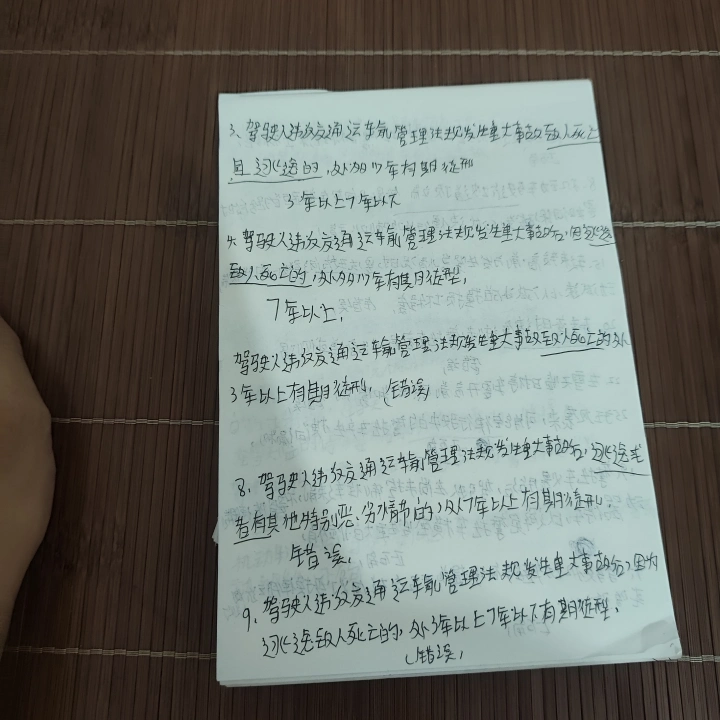 3、驾驶人违反交通运输管理法规发生重大事故致人死亡
且逃逸的,处多少年有期徒刑
3年以上7年以下
4、驾驶人违反交通运输管理法规发生重大事故后,因逃逸
致人死亡的,处多少年有期徒刑,
7年以上,
驾驶人违反交通运输管理法规发生重大事故致人死亡的处
3年以上有期徒刑,(错误)
8、驾驶人违反交通运输管理法规发生重大事故后,逃逸或
者有其他特别恶劣情节的,处7年以上有期徒刑,
错误,
9、驾驶人违反交通运输管理法规发生重大事故后,因为
逃逸致人死亡的,处3年以上7年以下有期徒刑,
(错误)